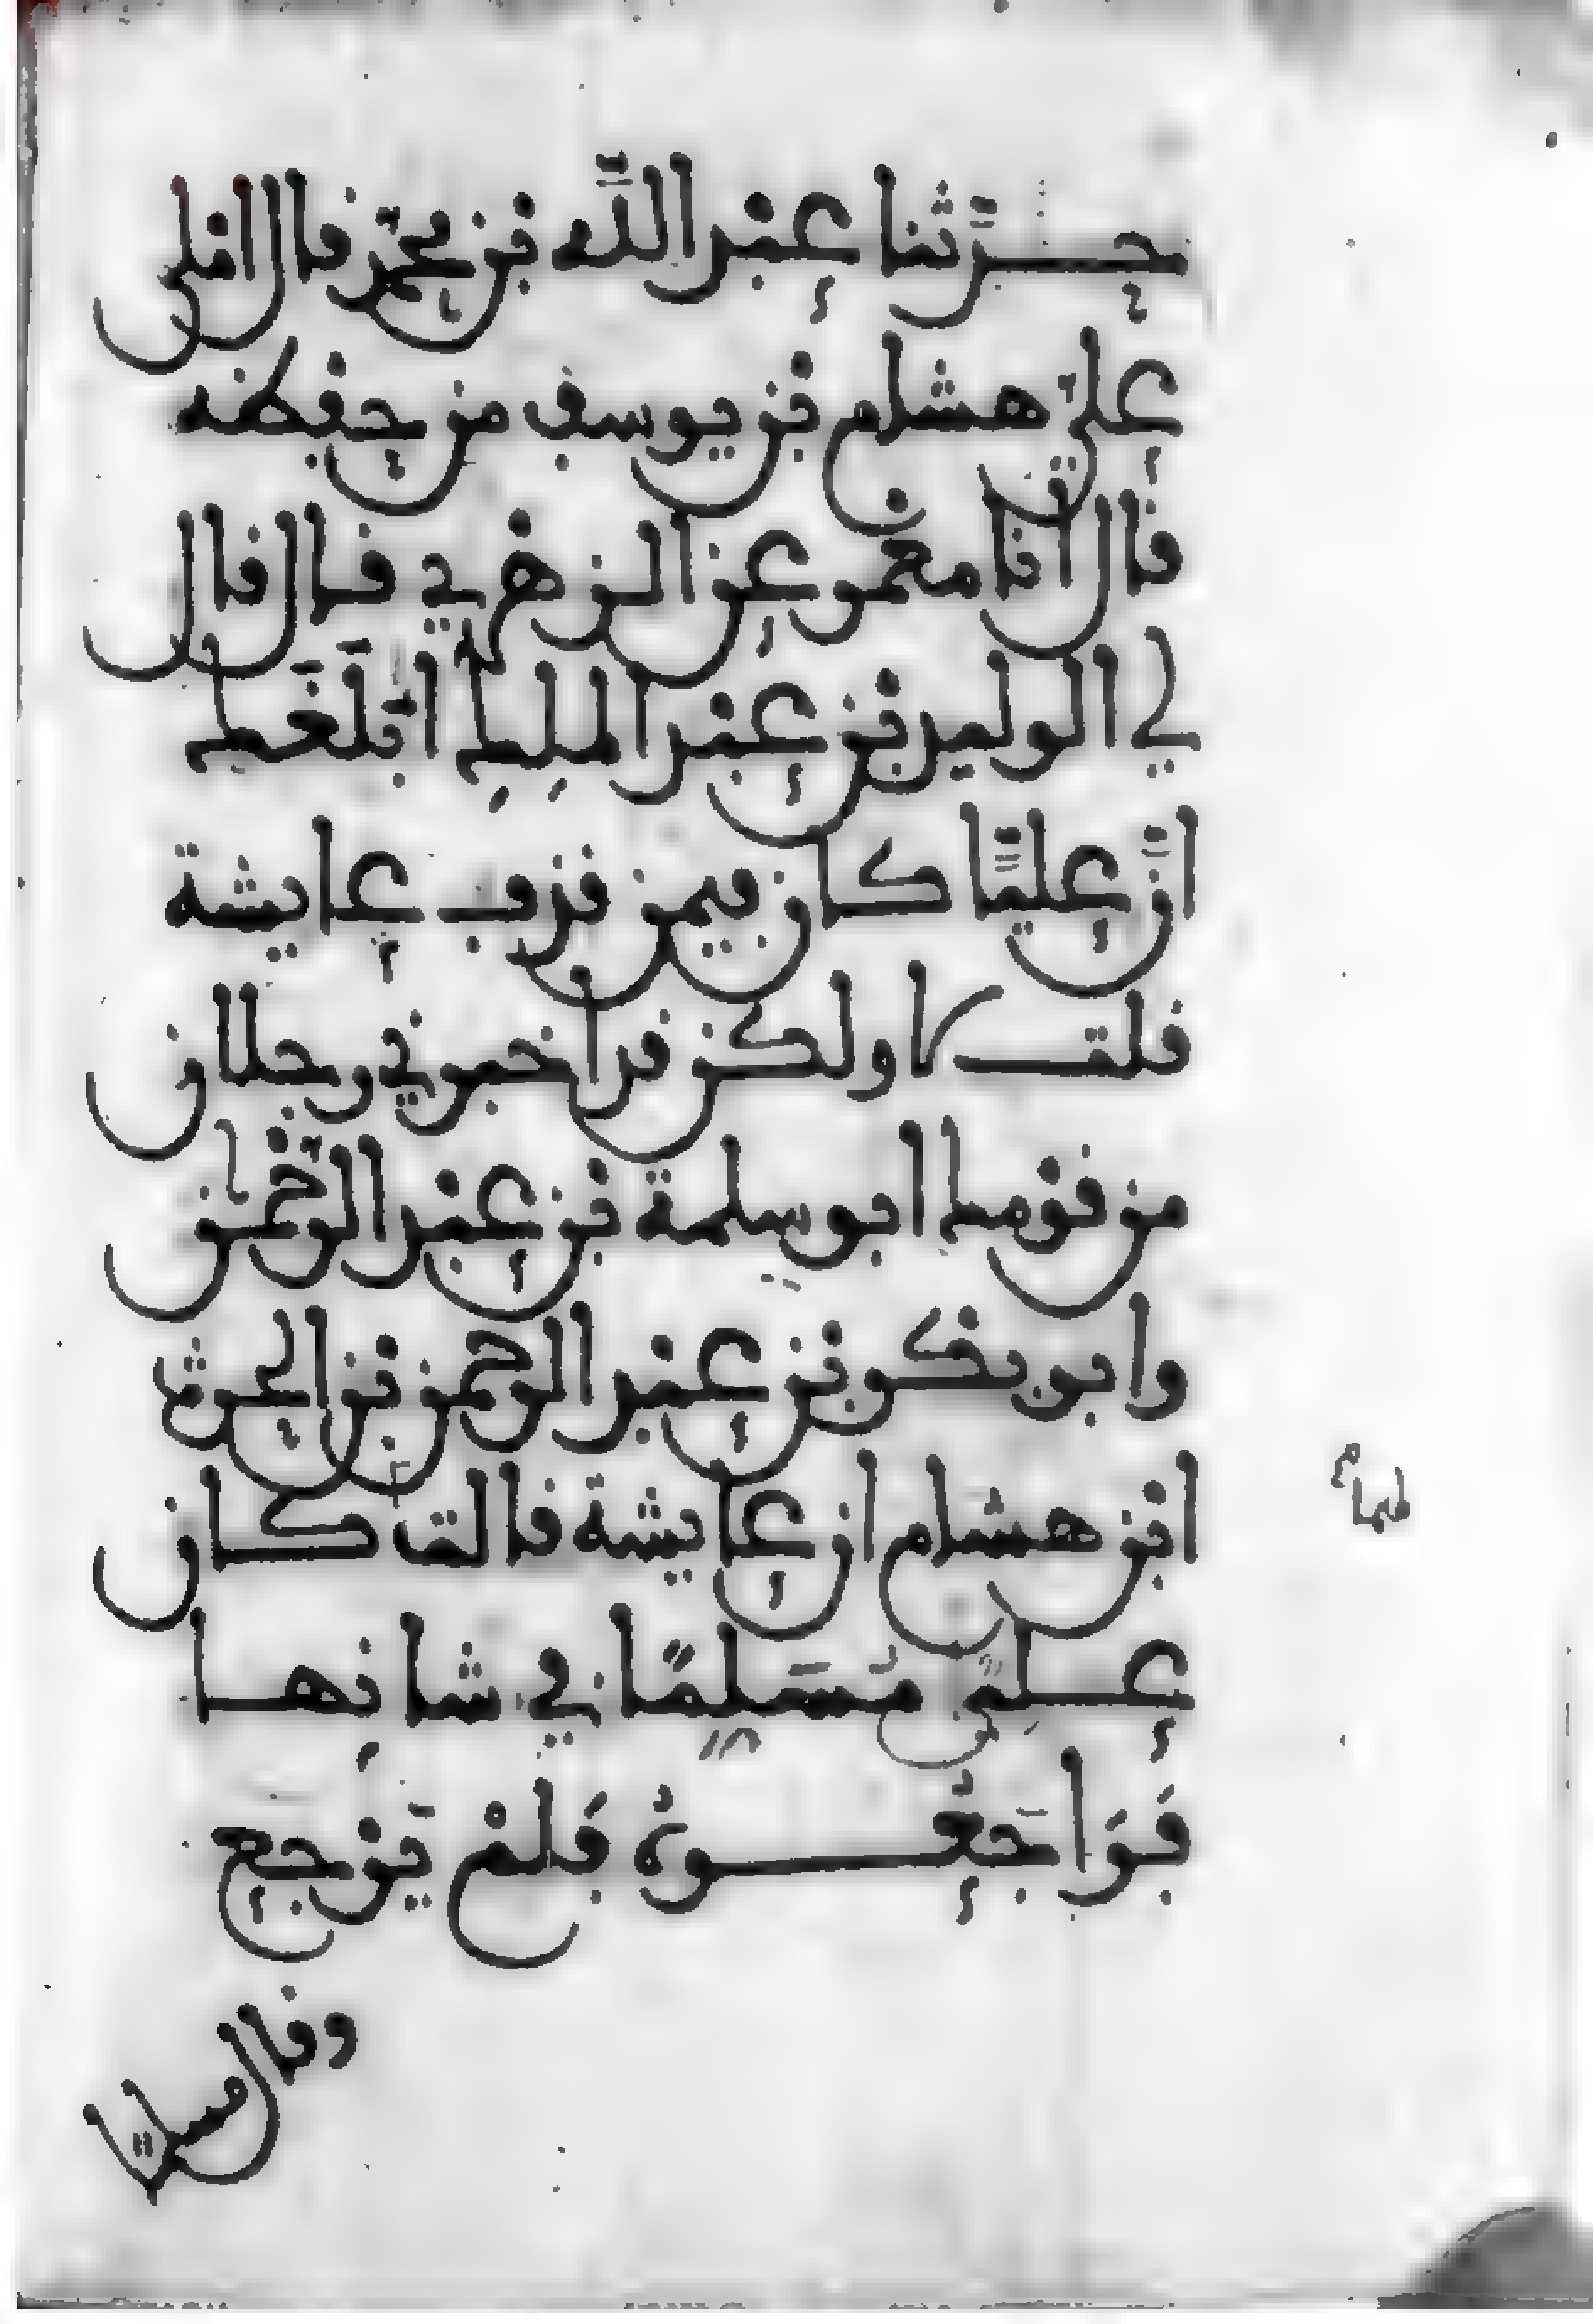 حدّثنا عبد الله بن محمّد قال املى
عليّ هشام بن يوسف من حفظه
قال انا معمر عن الزهري قال قال
لي الوليد بن عبد الملِكِ ابَلَغَك
انّ عليًّا كان فيمن قذف عايشة
قلت لا ولكن قد اخبرني رجلان
من قومك ابو سلمة بن عبد الرّحمن
وابو بكر بن عبد الرحمن بن الحرث
ابن هشام ان عايشة قالت كان
علِيٌّ مُسَلِّمًا في شانِهَا
فَرَاجَعُوهُ فَلمْ يَرْجع
وقال مسلّما
لهما